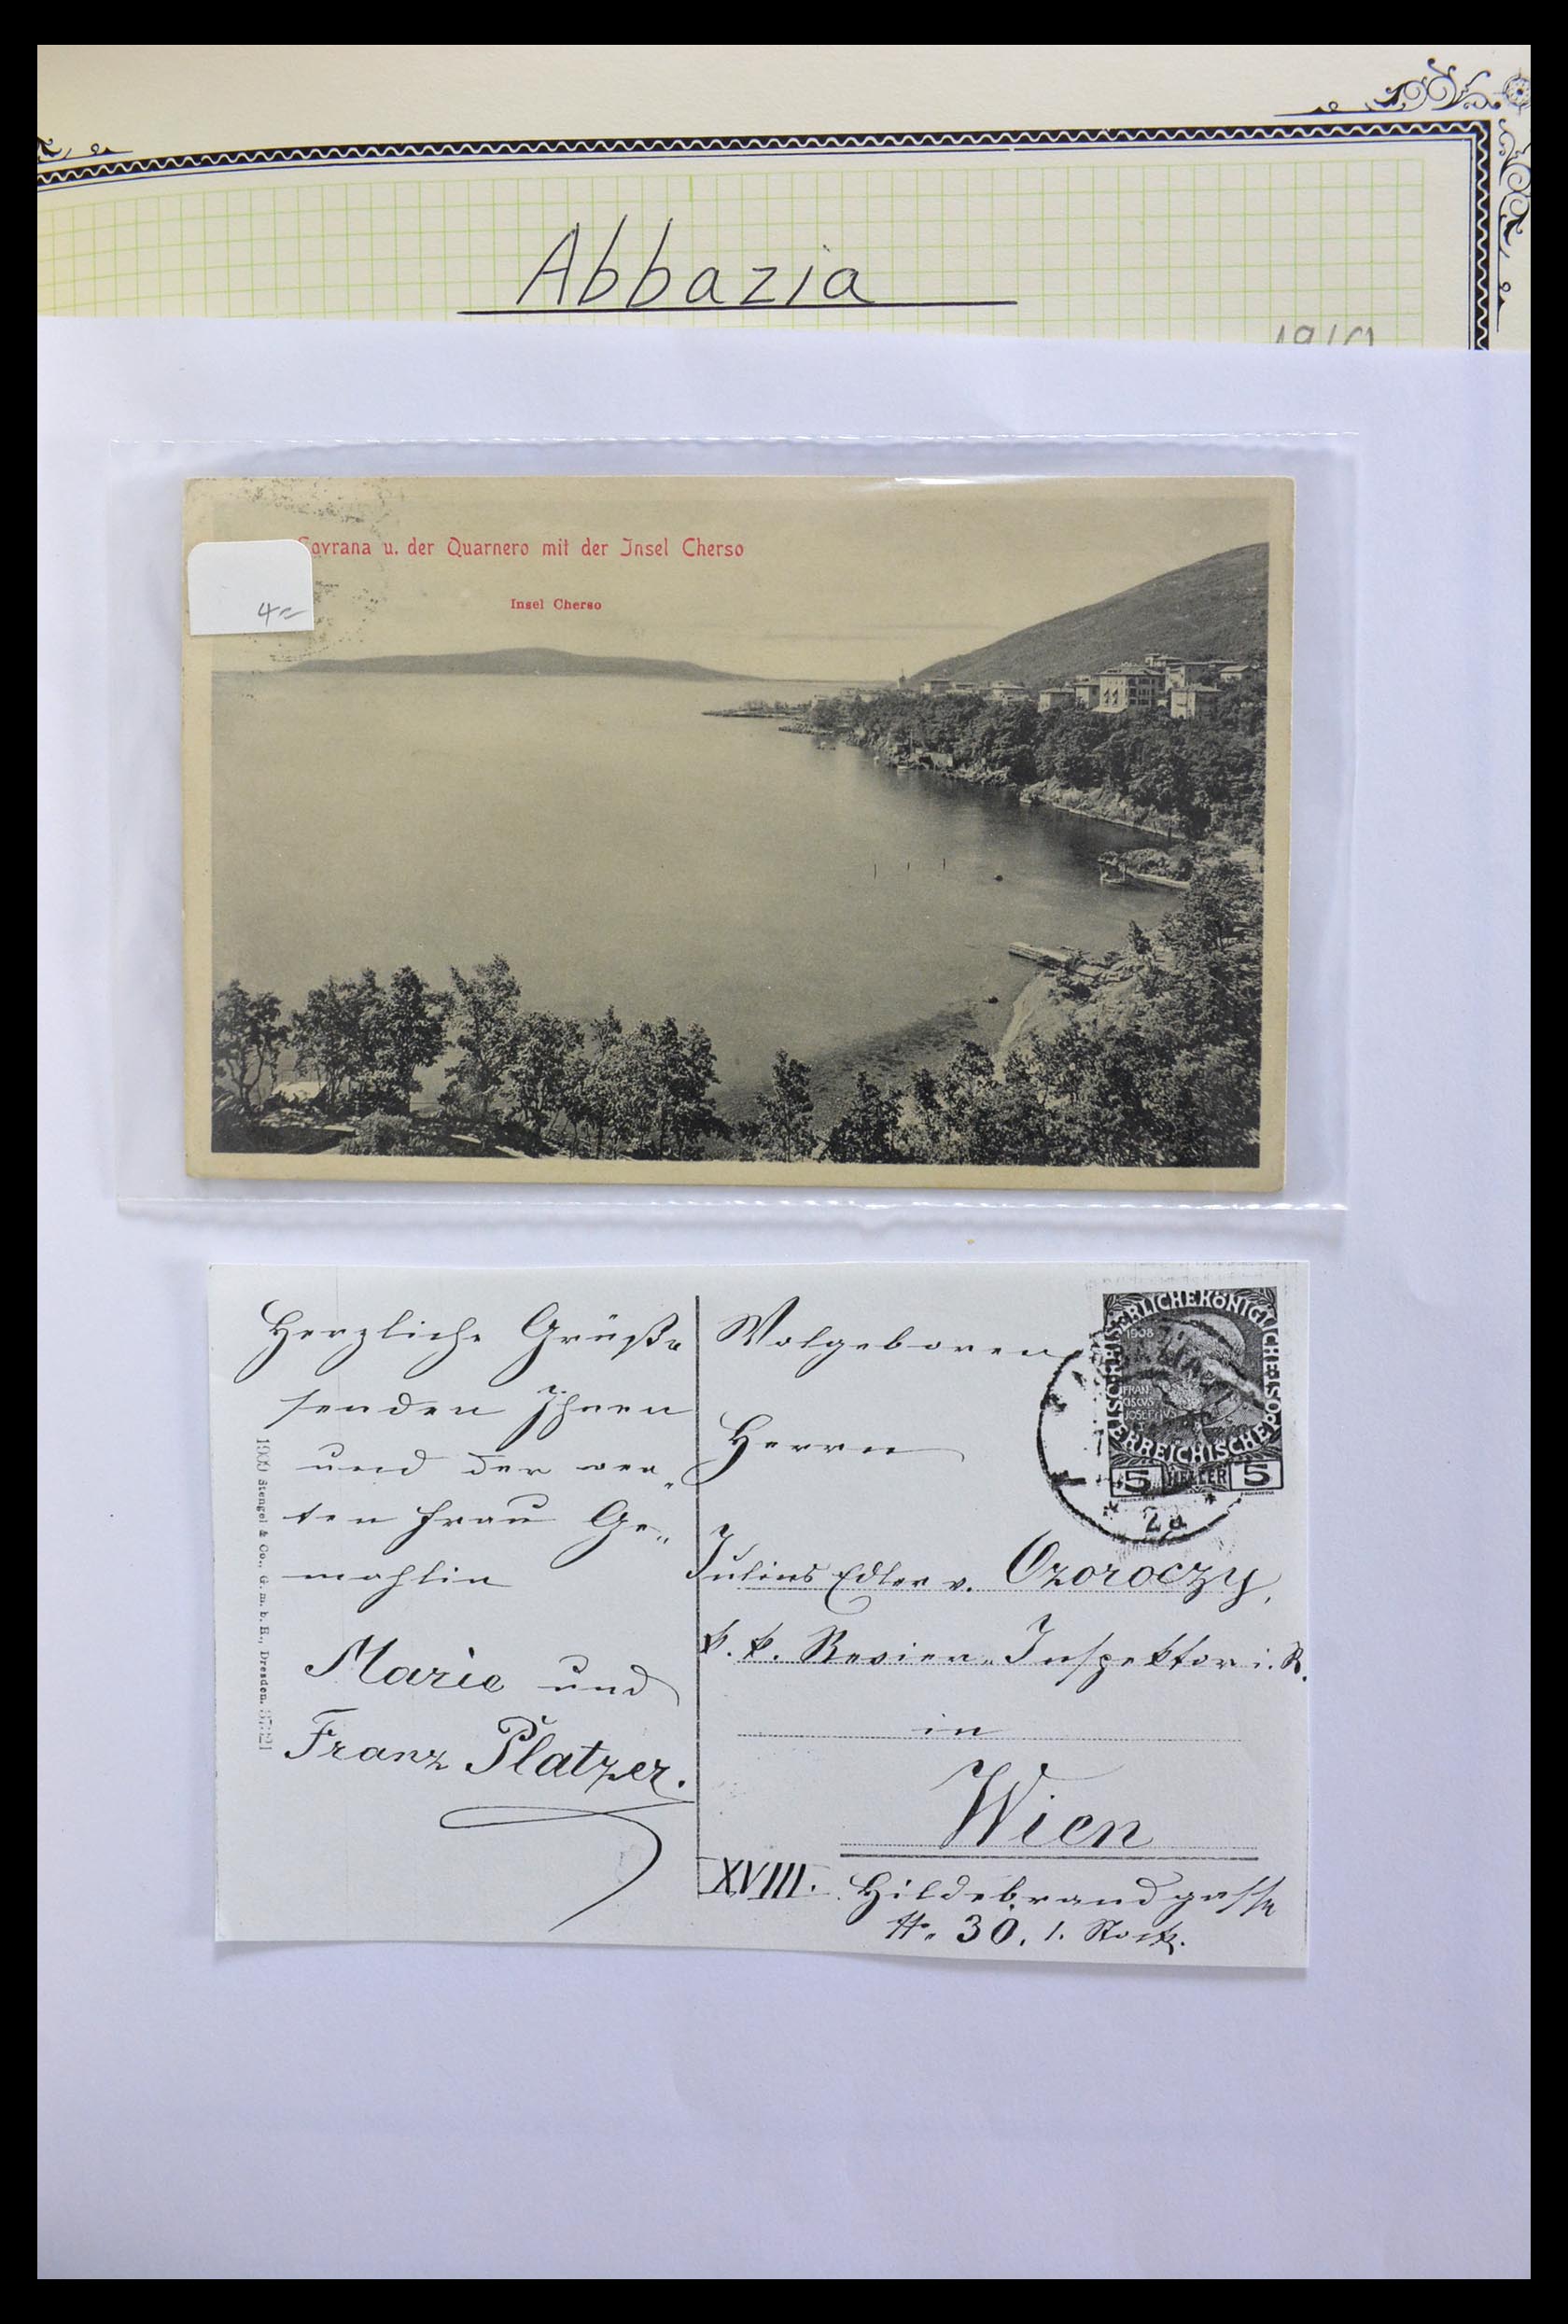 Abbazia
1910
Lovrana u. der Quarnero mit der Insel Cherso
Insel Cherso
4.-
Herzliche Grüße
senden Ihnen
und der wer-
ten Frau Ge-
mahlin
Marie und
Franz Platzer.
Stengel & Co., G. m. b. H., Dresden.
Wolgeboren
Herrn
Julius Edler v. Ozoroczy,
k. k. Revier-Inspektor i. R.
in
Wien
XVIII. Hildebrandgasse
N. 30. 1. Stock.
KAISERLICHE KÖNIGLICHE ÖSTERREICHISCHE
1908
FRAN
CISCVS
JOSEPHVS
I
5 HELLER 5
* 2a *